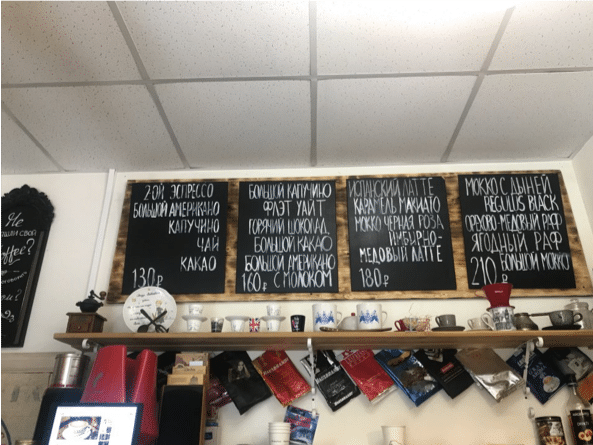 2ОЙ ЭСПРЕССО
БОЛЬШОЙ АМЕРИКАНО
КАПУЧИНО
ЧАЙ
КАКАО
130₽
БОЛЬШОЙ КАПУЧИНО
ФЛЭТ УАЙТ
ГОРЯЧИЙ ШОКОЛАД
БОЛЬШОЙ КАКАО
БОЛЬШОЙ АМЕРИКАНО
160₽ С МОЛОКОМ
ИСПАНСКИЙ ЛАТТЕ
КАРАМЕЛЬ МАКИАТО
МОККО ЧЕРНАЯ РОЗА
ИМБИРНО-
МЕДОВЫЙ ЛАТТЕ
180₽
МОККО С ДЫНЕЙ
REGULUS BLACK
ОРЕХОВО-МЕДОВЫЙ РАФ
ЯГОДНЫЙ РАФ
210₽ БОЛЬШОЙ МОККО
Не
свой